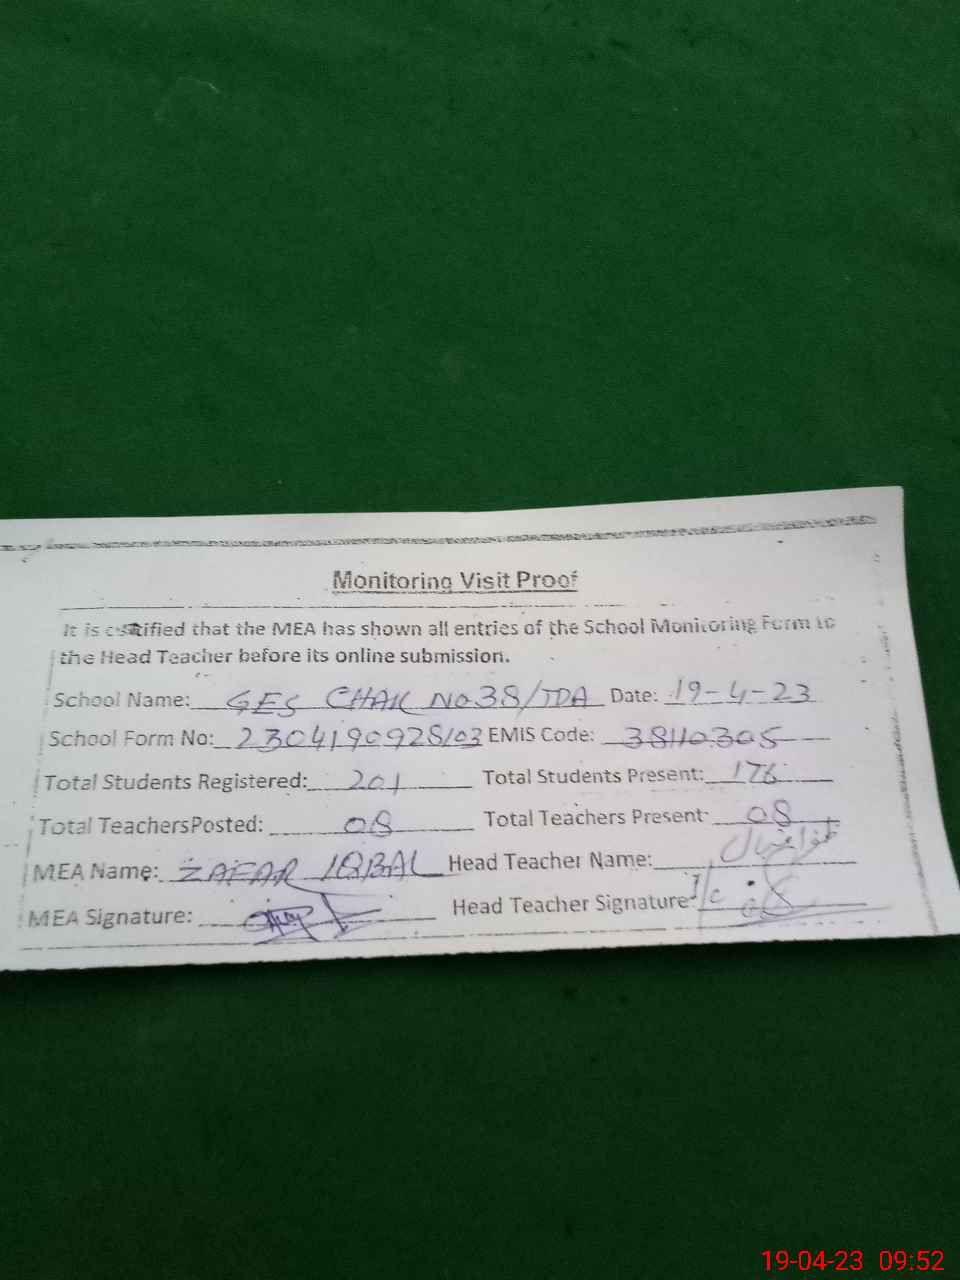 Monitoring Visit Proof
It is certified that the MEA has shown all entries of the School Monitoring Form to
the Head Teacher before its online submission.
School Name: GES CHAK No 38/TDA Date: 19-4-23
School Form No: 2304190928103 EMIS Code: 38110305
Total Students Registered: 201 Total Students Present: 176
Total TeachersPosted: 08 Total Teachers Present: 08
MEA Name: ZAFAR IQBAL Head Teacher Name:
MEA Signature: Head Teacher Signature: I/c
19-04-23 09:52